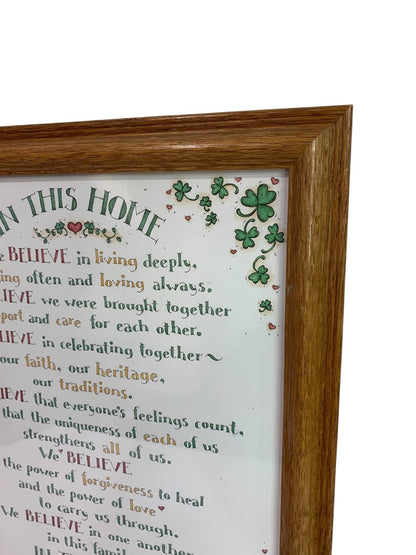 IN THIS HOME
BELIEVE in living deeply,
often and loving always.
we were brought together
and care for each other.
in celebrating together~
our faith, our heritage,
our traditions.
that everyone's feelings count,
that the uniqueness of each of us
strengthens all of us.
We BELIEVE
the power of forgiveness to heal
and the power of love
to carry us through.
We BELIEVE in one another
in this family